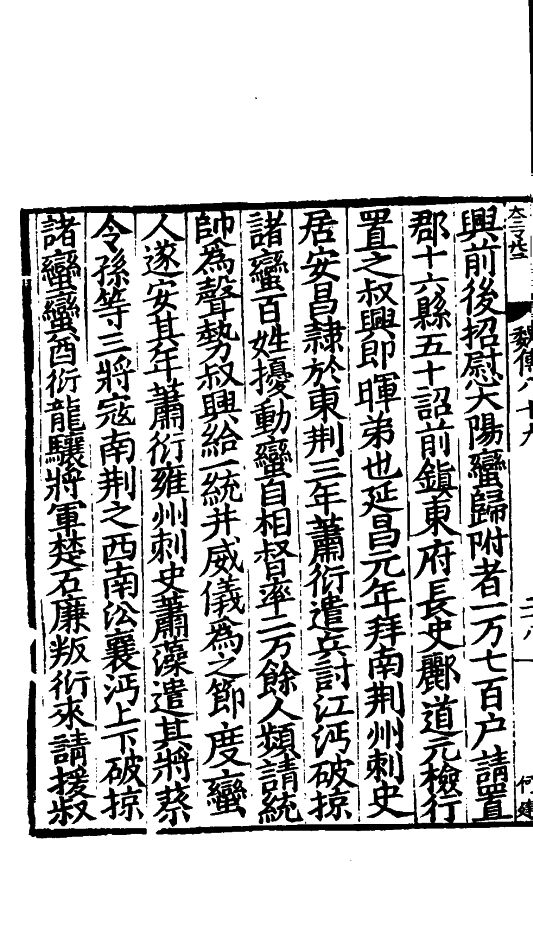 魏傳八十九
興前後招慰大陽蠻歸附者一万七百户請置
郡十六縣五十詔前鎮東府長史酈道元檢行
置之叔興即暉弟也延昌元年拜南荆州刺史
居安昌隸於東荆三年蕭衍遣兵討江沔破掠
諸蠻百姓擾動蠻自相督率二万餘人頻請統
帥爲聲勢叔興給一統并威儀爲之節度蠻
人遂安其年蕭衍雍州刺史蕭藻遣其將蔡
令孫等三將寇南荆之西南沿襄沔上下破掠
諸蠻蠻酋衍龍驤將軍楚石廉叛衍來請援叔